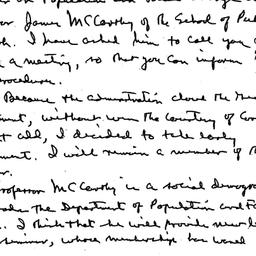 the Population and
or James McCarthy of the School of Publ
h. I have asked him to call you
a meeting, so that you can inform
rocedures.
Because the administration closed the
ment, without even the courtesy of con
at all, I decided to take early
ment. I will remain a member of
or.
rofessor McCarthy is a social demograp
the Department of Population and Fa
. I think that he will provide new
seminar, whose membership has